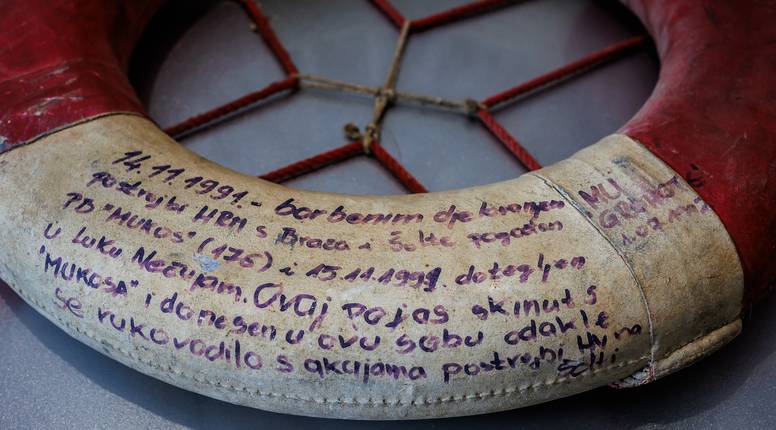 14.11.1991.- borbenim djelovanjem
postrojbi HRM s Brača i Šolte pogođen
PB "MUKOS" (176) i 15.11.1991. dotegljen
u luku Nečujam. Ovaj pojas skinut s
"MUKOSA" i donesen u ovu sobu odakle
se rukovodilo s akcijama postrojbi HM na
Šolti
MLI